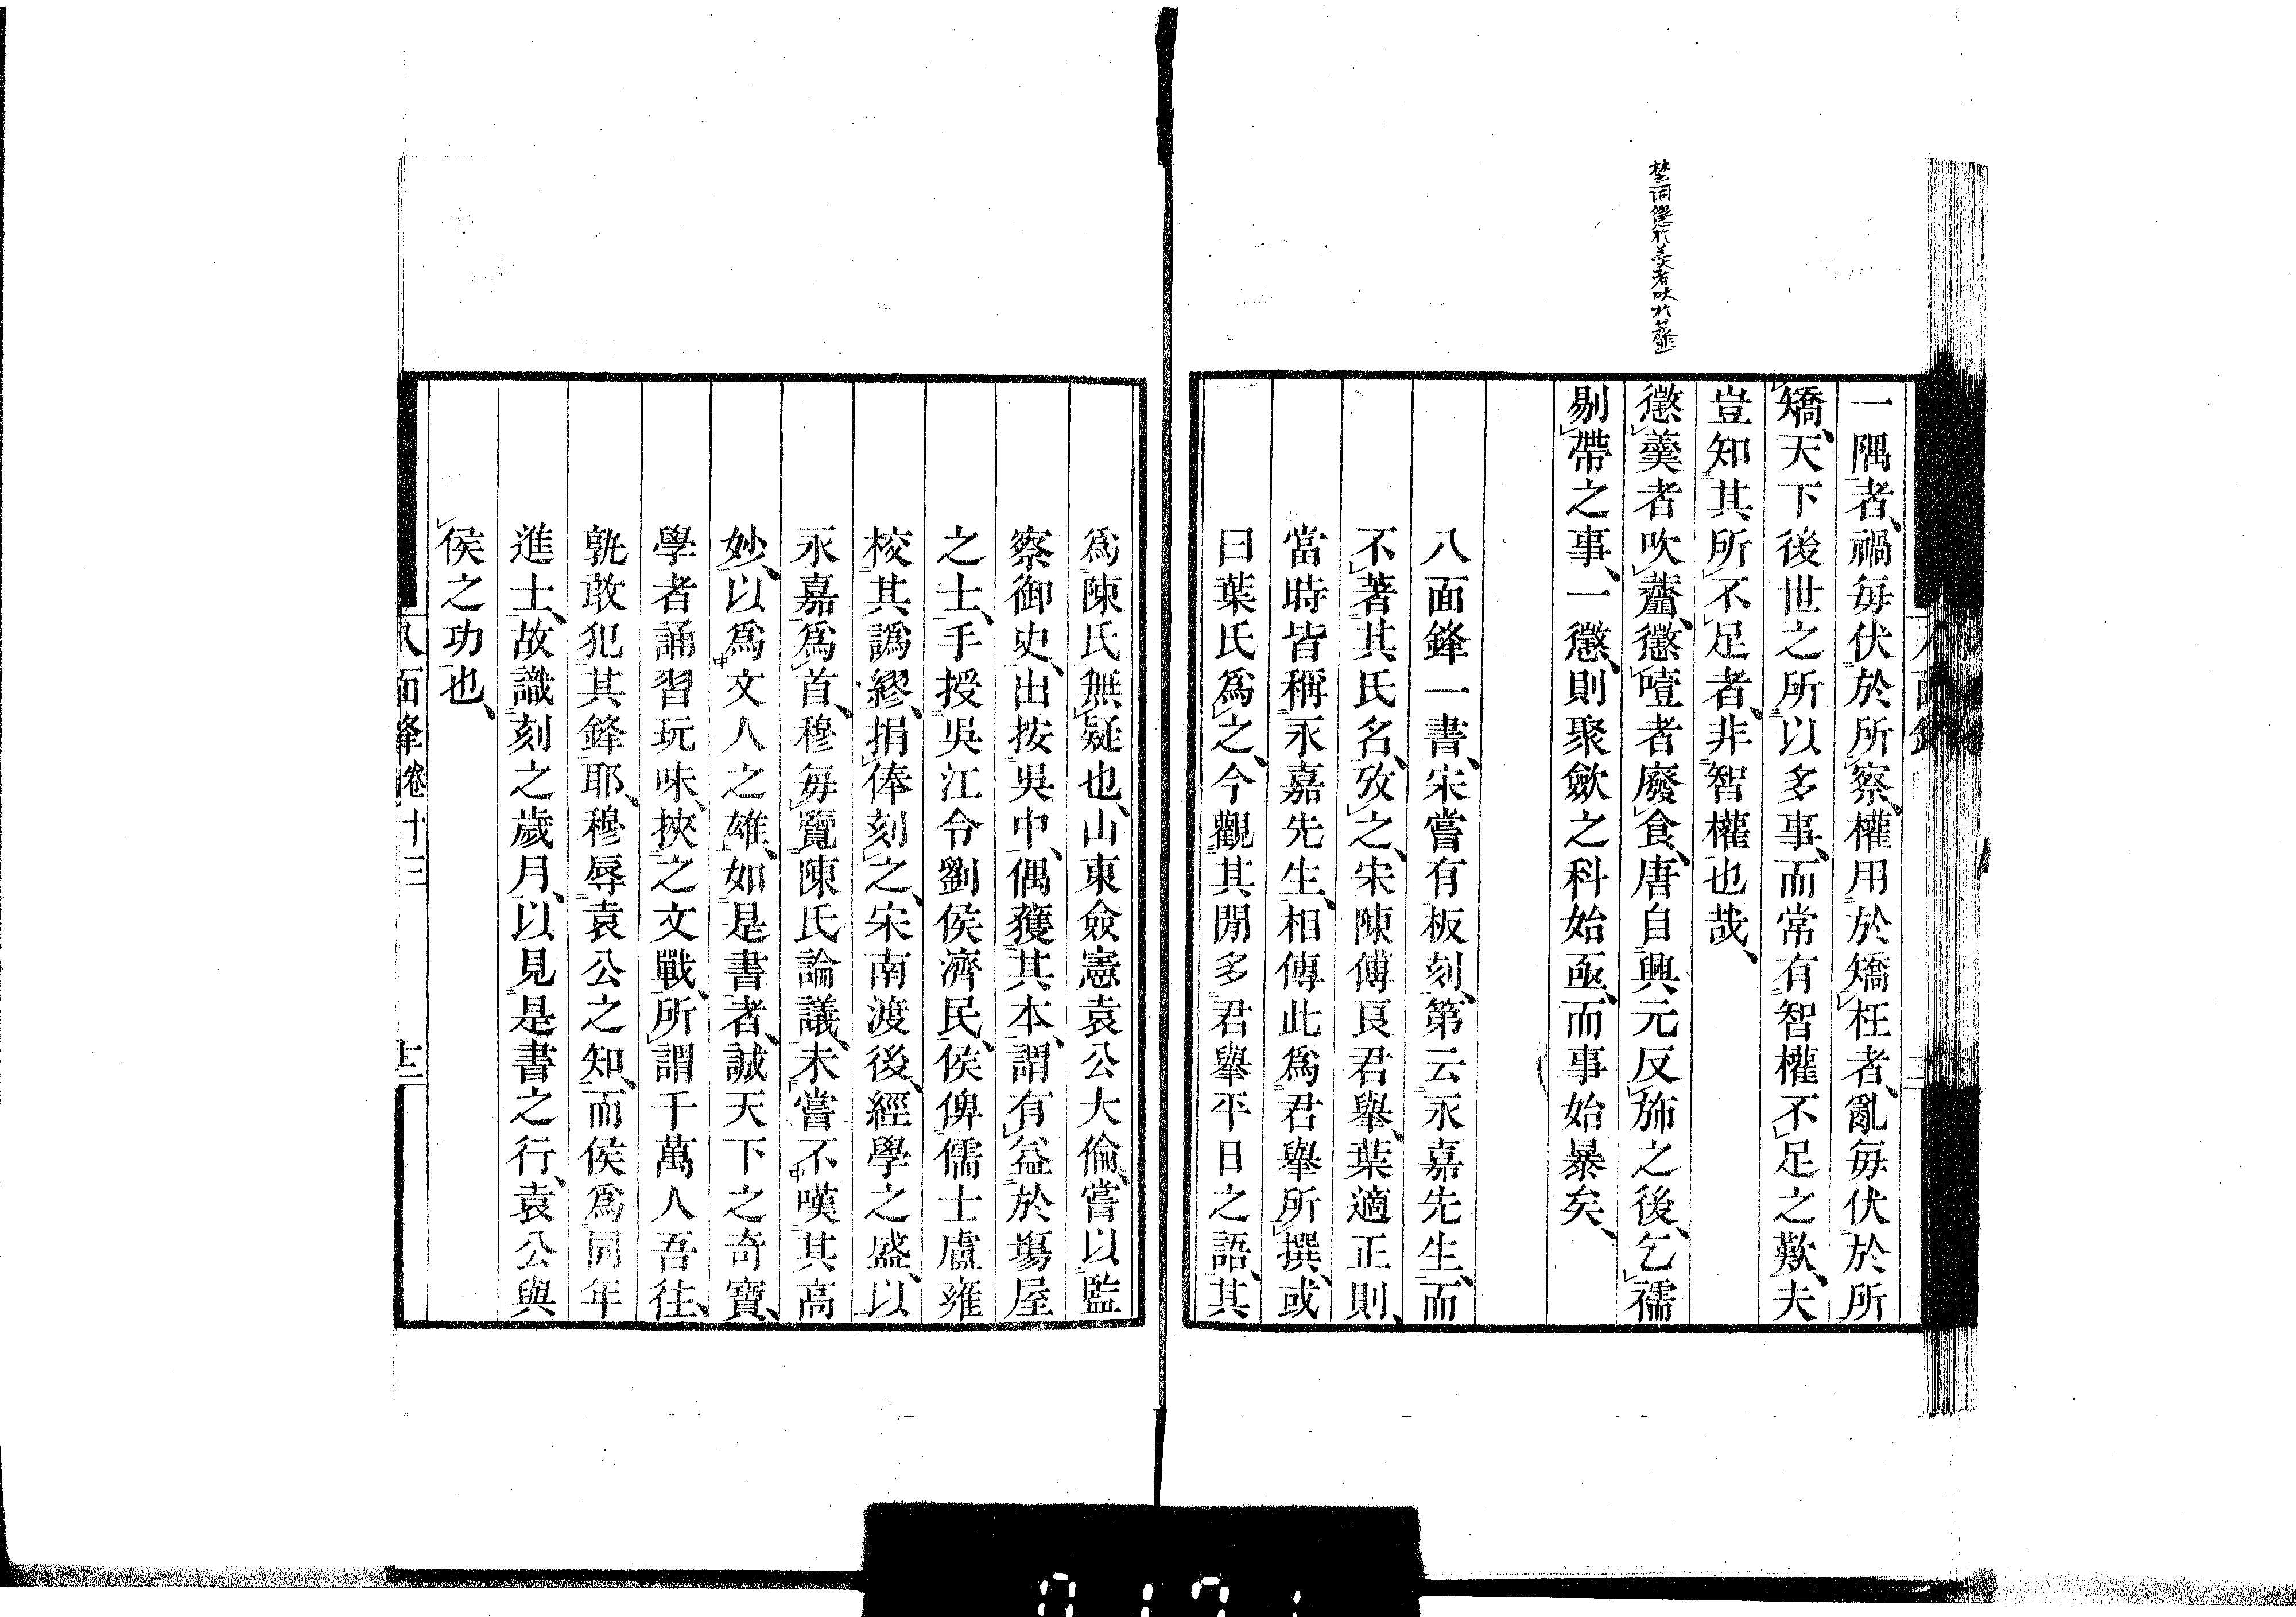 楚詞懲於羹者吹於虀
一隅者、禍每伏於所察、權用於矯枉者、亂每伏於所
矯、天下後世之所以多事、而常有智權不足之歎、夫
豈知其所不足者、非智權也哉、
懲羹者吹虀、懲噎者廢食、唐自興元反斾之後、乞襦
剔帶之事、一懲、則聚斂之科始亟、而事始暴矣、
八面鋒一書、宋嘗有板刻、第云永嘉先生、而
不著其氏名、攷之、宋陳傅良君舉、葉適正則、
當時皆稱永嘉先生、相傳此為君舉所撰、或
曰葉氏爲之、今觀其閒多君舉平日之語、其
爲陳氏無疑也、山東僉憲袁公大倫、嘗以監
察御史、出按吳中、偶獲其本、謂有益於塲屋
之士、手授吳江令劉侯濟民、侯俾儒士盧雍
校其譌繆、捐俸刻之、宋南渡後、經學之盛、以
永嘉爲首、穆每覽陳氏論議、未嘗不嘆其高
妙、以爲文人之雄、如是書者、誠天下之奇寶、
學者誦習玩味、挾之文戰、所謂千萬人吾往、
孰敢犯其鋒耶、穆辱袁公之知、而侯爲同年
進士、故識刻之歲月、以見是書之行、袁公與
侯之功也、
八面鋒卷十三
十二